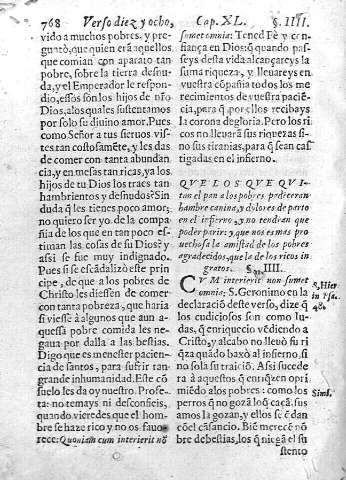 768 Verso diez y ocho, Cap. XL. §. IIII.
vido a muchos pobres, y pre-
guntò, que quien erã aquellos
que comian con aparato tan
pobre, sobre la tierra desnu-
da, y el Emperador le respon-
dio, essos son los hijos de nr̃o
Dios, a los quales sustentamos
por solo su diuino amor. Pues
como Señor a tus sieruos vis-
tes tan costosamẽte, y les das
de comer con tanta abundan-
cia, y en mesas tan ricas, ya los
hijos de tu Dios los traes tan
hambrientos y desnudos? Sin
duda q̃ les tienes poco amor,
no quiero ser yo de la compa-
ñia de los que en tan poco es-
timan las cosas de su Dios? y
assi se fue muy indignado.
Pues si se escãdalizò este prin
cipe, de que a los pobres de
Christo les diessen de comer
con tanta pobreza, que haria
si viesse à algunos que aun a-
quessa pobre comida les ne-
gaua por dalla a las bestias.
Digo que es menester pacien-
cia de santos, para sufrir tan
grande inhumanidad. Este cõ
suelo les da oy nuestro. Profe-
ta: no temays ni desconfieis,
quando vieredes que el hom-
bre se haze rico y no os fauo-
rece: Quoniam cum interierit nõ
sumet omnia: Tened Fè y con
fiança en Dios: q̃ quando pas-
seys desta vida alcançareys la
suma riqueza, y lleuareys en
vuestra cõpañia todos los me
recimientos de vuestra paciẽ-
cia, para q̃ por ellos recibays
la corona de gloria. Pero los ri
cos no lleuarã sus riquezas si-
no sus tiranias, para q̃ sean cas
tigadas en el infierno.
QVE LOS QVE QVI-
tan el pan a los pobres padeceran
hambre canina, y dolores de parto
en el infierno, y no tendran que
poder parir: y que nos es mas pro-
uechosa la amistad de los pobres
agradecidos, que la de los ricos in
gratos. §. IIII.
CVM interierit non sumet
omnia: S. Geronimo en la
declaraciõ deste verso, dize q̃
los cudiciosos son como Iu-
das, q̃ enriquecio vẽdiendo a
Christo, y al cabo no lleuò su ri
q̃za quãdo baxò al infierno, si
no sola su traiciõ. Assi sucede
rà à aquestos q̃ enriq̃zen opri
miẽdo a los pobres: como los
perros q̃ no gozã lo q̃ caçã. sus
amos la gozan, y ellos se cã dan
cõ el cãsancio. Biẽ merecẽ nõ-
bre de bestias, los q̃ niegã el su
stento
S. Hier
in Psa.
48.
Simil.